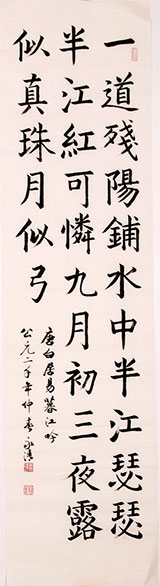 一道殘陽鋪水中半江瑟瑟
半江紅可憐九月初三夜露
似真珠月似弓
唐白居易暮江吟
公元二千年仲春